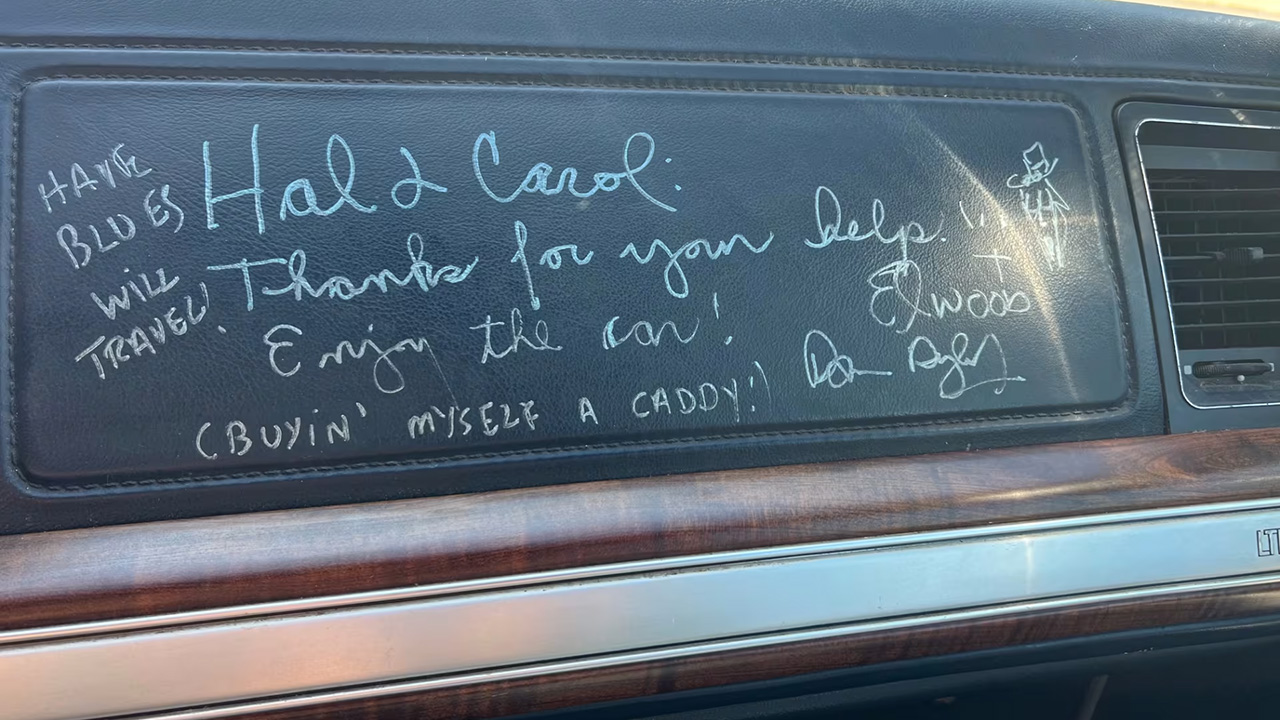 HAVE
BLUES
WILL
TRAVEL!
Hal & Carol:
Thanks for your help!!!
Enjoy the car!
(BUYIN' MYSELF A CADDY!)
+
Elwood
Dan Aykroyd
LTD